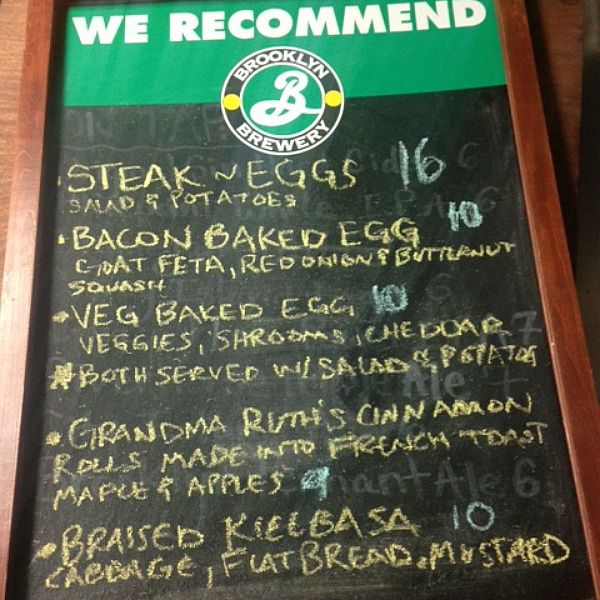 WE RECOMMEND
BROOKLYN
B
BREWERY
STEAK N EGGS 16
SALAD & POTATOES
• BACON BAKED EGG 10
GOAT FETA, RED ONION & BUTTERNUT
SQUASH
• VEG BAKED EGG 10
VEGGIES, SHROOMS, CHEDDAR
* BOTH SERVED W/ SALAD & POTATOS
• GRANDMA RUTH'S CINNAMON
ROLLS MADE INTO FRENCH TOAST
MAPLE & APPLES 9
• BRAISED KIELBASA 10
CABBAGE, FLATBREAD, MUSTARD